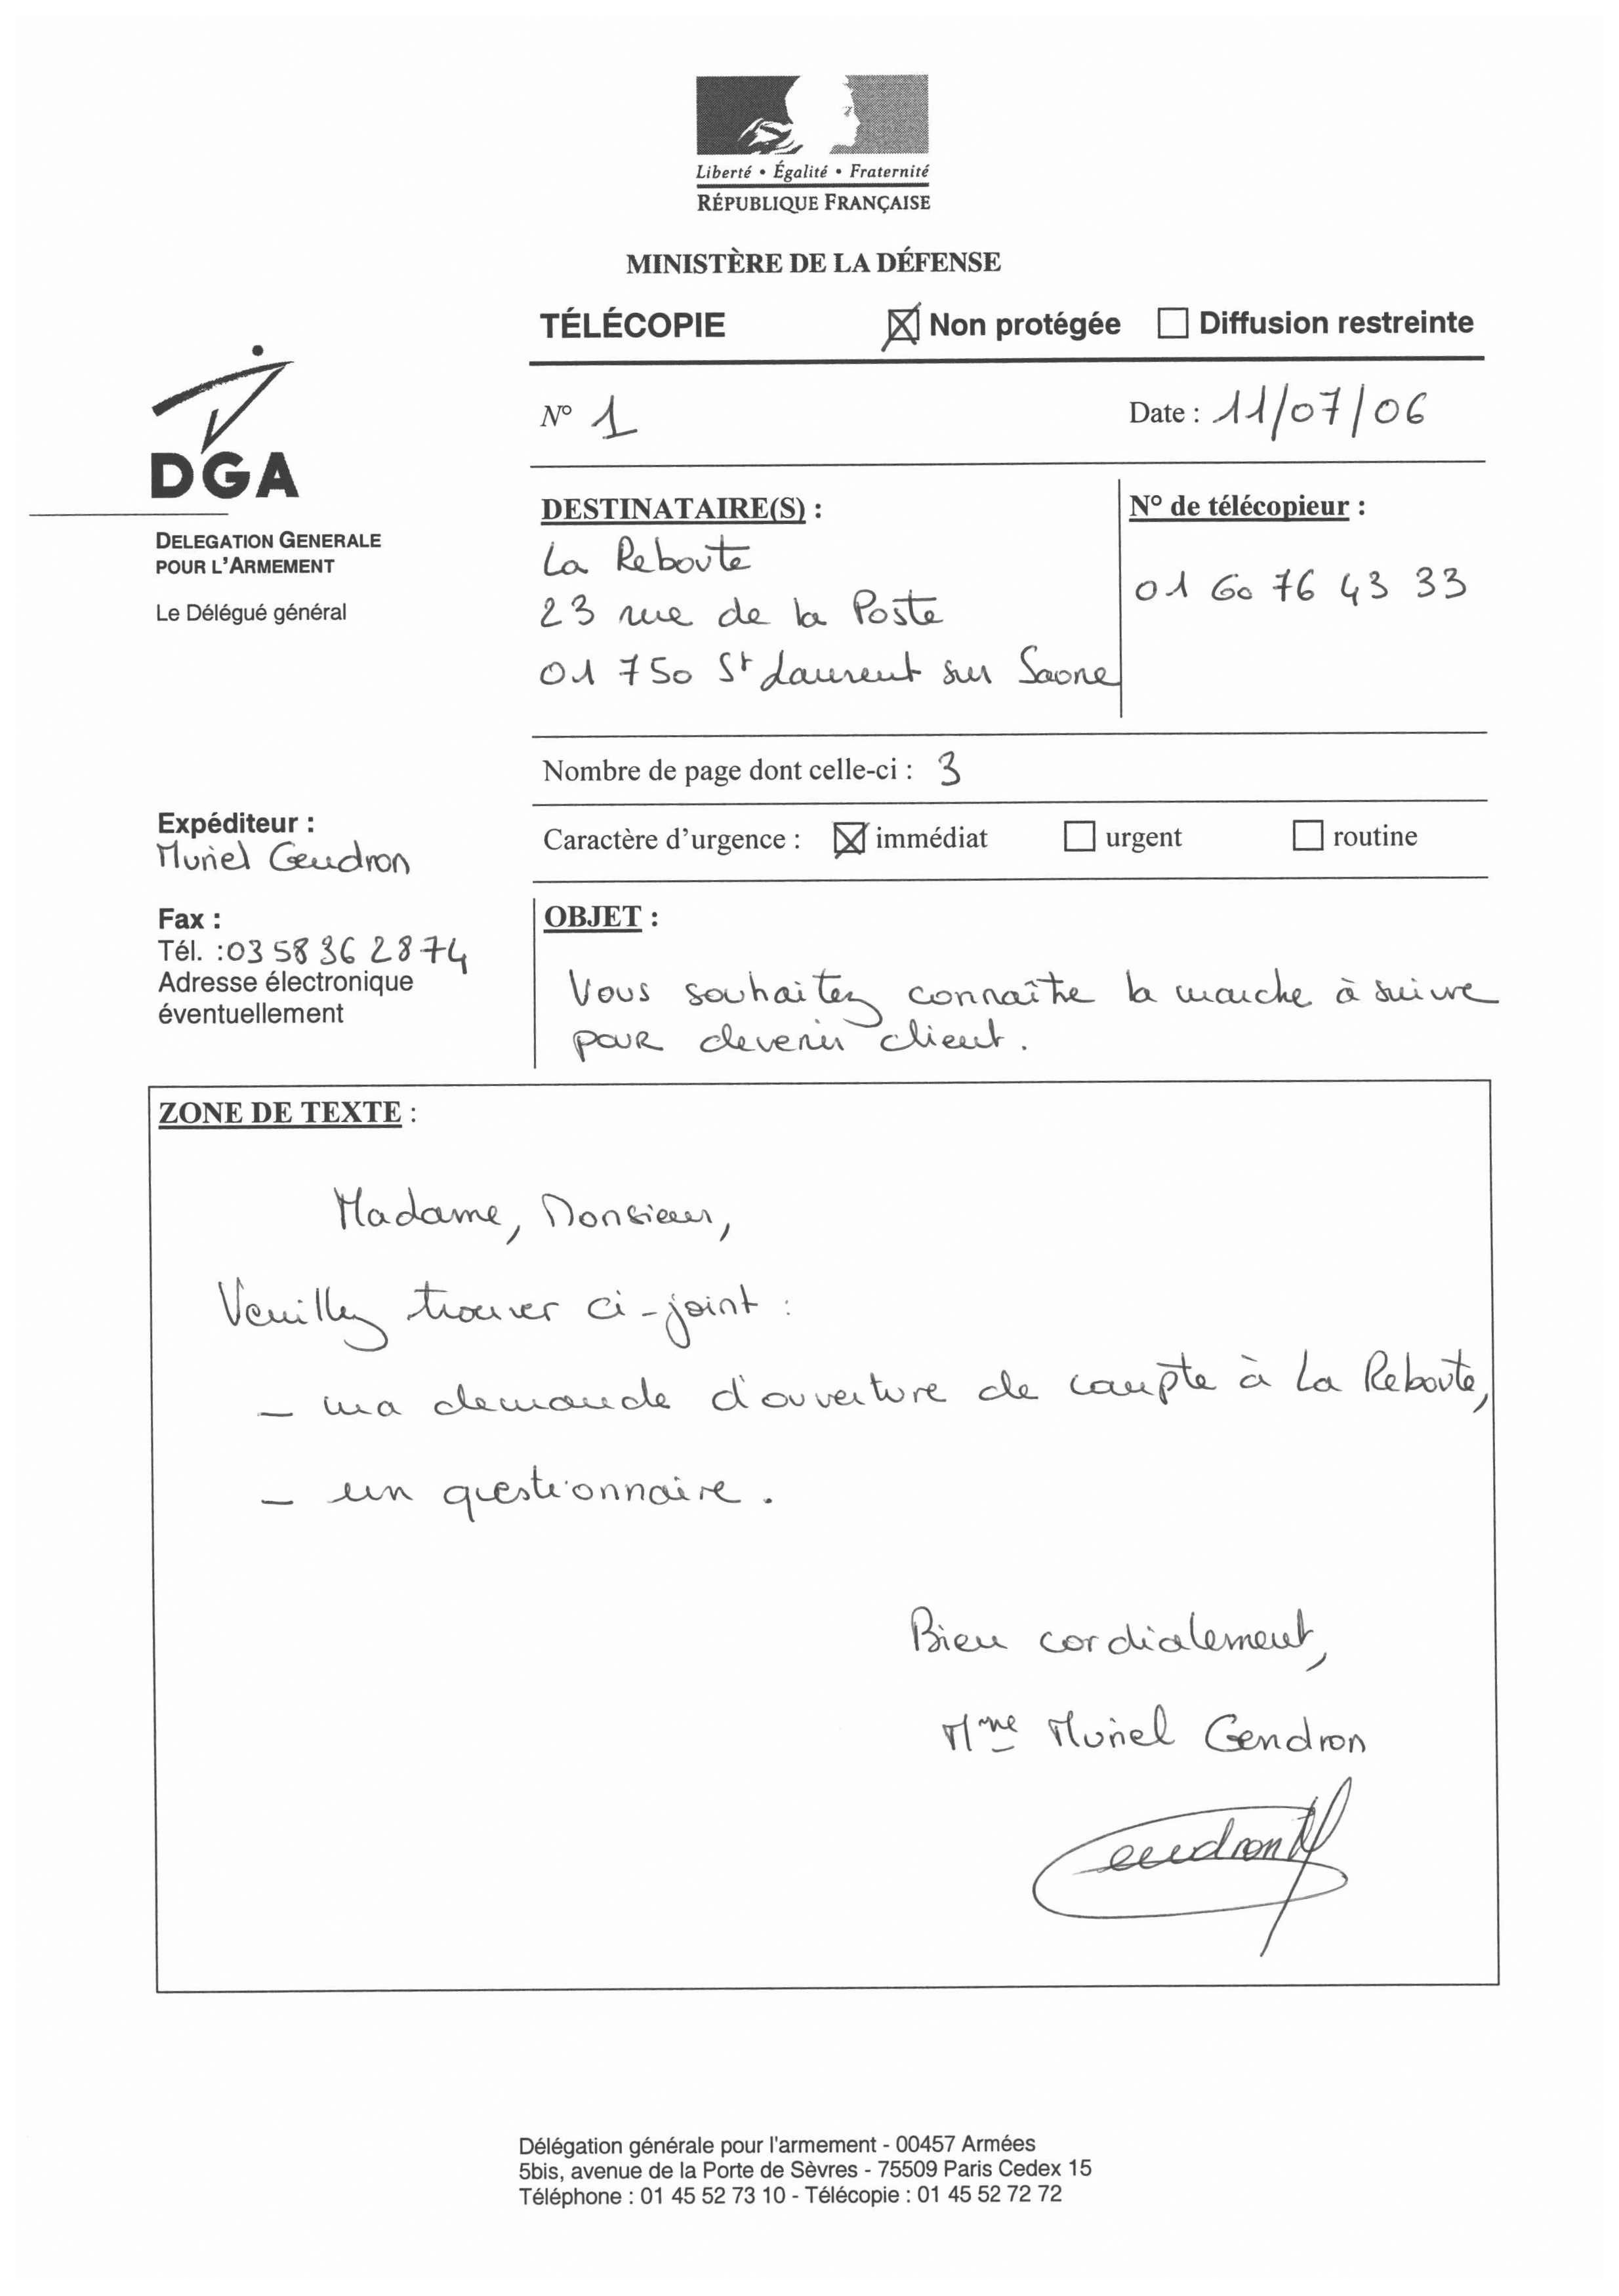 Liberté • Égalité • Fraternité
RÉPUBLIQUE FRANÇAISE
MINISTÈRE DE LA DÉFENSE
TÉLÉCOPIE Non protégée Diffusion restreinte
N° 1 Date : 11/07/06
DGA
DELEGATION GENERALE
POUR L'ARMEMENT
Le Délégué général
DESTINATAIRE(S) :
La Reboute
23 rue de la Poste
01 750 St Laurent sur Saone
N° de télécopieur :
01 60 76 43 33
Nombre de page dont celle-ci : 3
Expéditeur :
Muriel Gendron
Caractère d'urgence : immédiat urgent routine
Fax :
Tél. : 03 58 36 28 74
Adresse électronique
éventuellement
OBJET :
Vous souhaitez connaître la marche à suivre
pour devenir client.
ZONE DE TEXTE :
Madame, Monsieur,
Veuillez trouver ci-joint :
- ma demande d'ouverture de compte à La Reboute,
- un questionnaire.
Bien cordialement,
Mme Muriel Gendron
Gendron M
Délégation générale pour l'armement - 00457 Armées
5bis, avenue de la Porte de Sèvres - 75509 Paris Cedex 15
Téléphone : 01 45 52 73 10 - Télécopie : 01 45 52 72 72